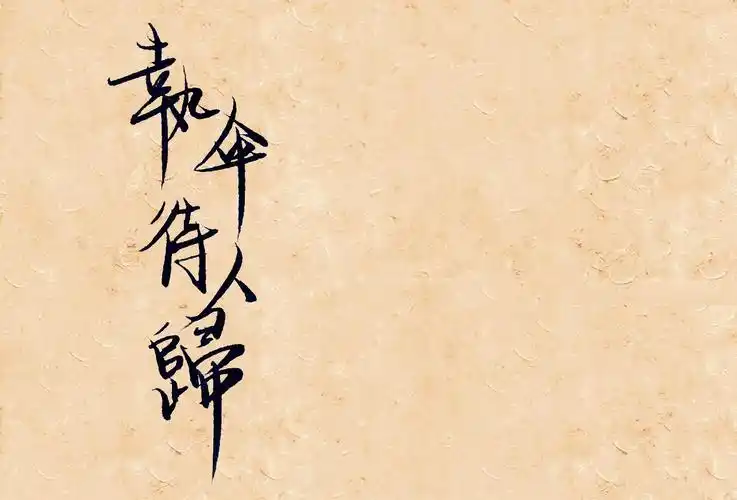 執伞待人歸